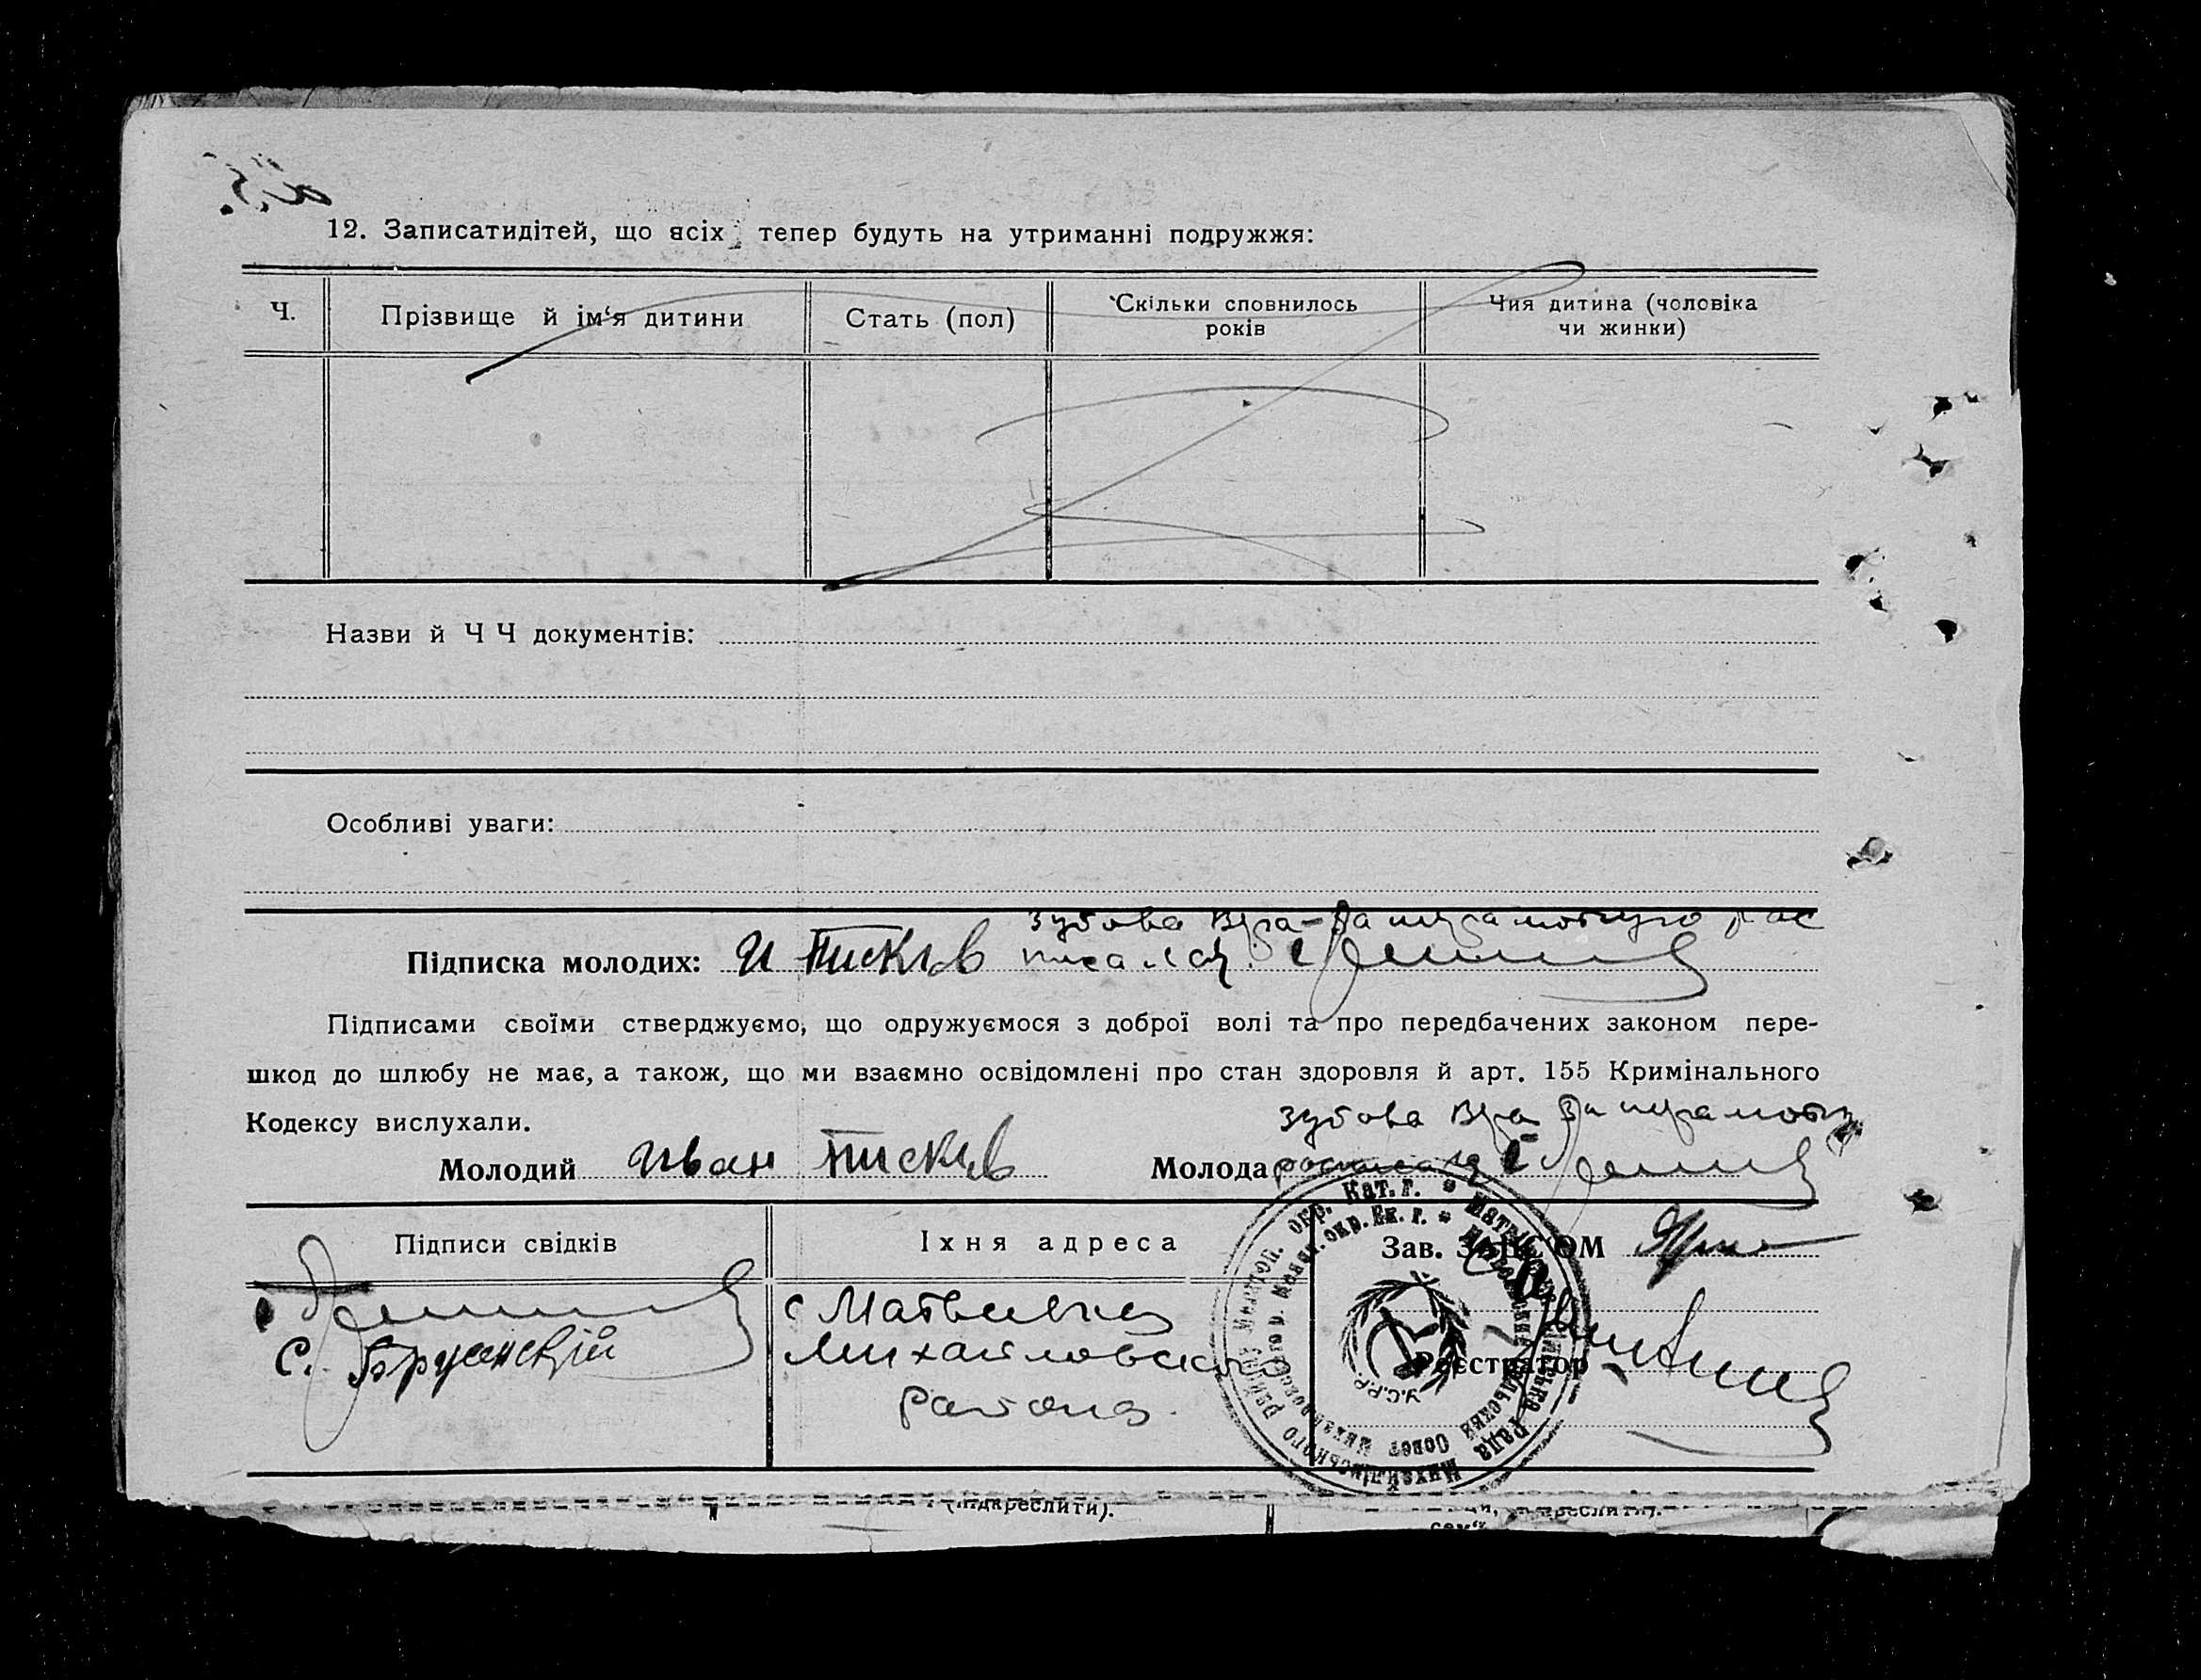 12. Записатидітей, що всіх тепер будуть на утриманні подружжя:
Ч.
Прізвище й ім'я дитини
Стать (пол)
Скільки сповнилось
років
Чия дитина (чоловіка
чи жинки)
Назви й Ч Ч документів:
Особливі уваги:
Зубова Вера - За неграмотную рас
Підписка молодих: И Пискив писался
Підписами своїми стверджуємо, що одружуємося з доброї волі та про передбачених законом пере-
шкод до шлюбу не має, а також, що ми взаємно освідомлені про стан здоровля й арт. 155 Кримінального
Кодексу вислухали.
Зубова Вера За неграмотн
Молодий Иван Пискив
Молода
Підписи свідків
Їхня адреса
Зав. ЗАГС'ОМ
с Матвеевка
Михайловского
района.
Реєстратор
У.С.Р.Р.
(підкреслити).